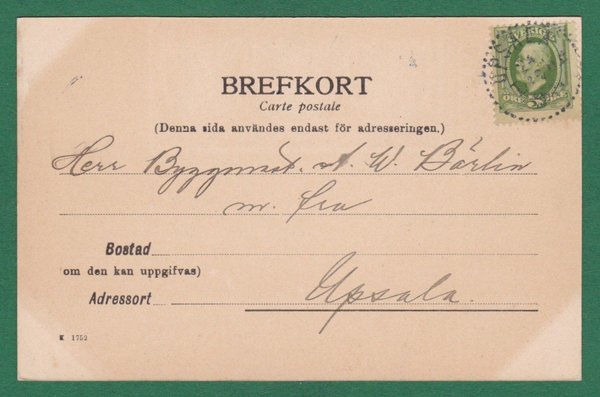 BREFKORT
Carte postale
(Denna sida användes endast för adresseringen.)
Herr Byggmäst. A. W. Börlin
m. fru
Bostad
om den kan uppgifvas)
Upsala.
Adressort
K 1752
SVERIGE
UPSALA